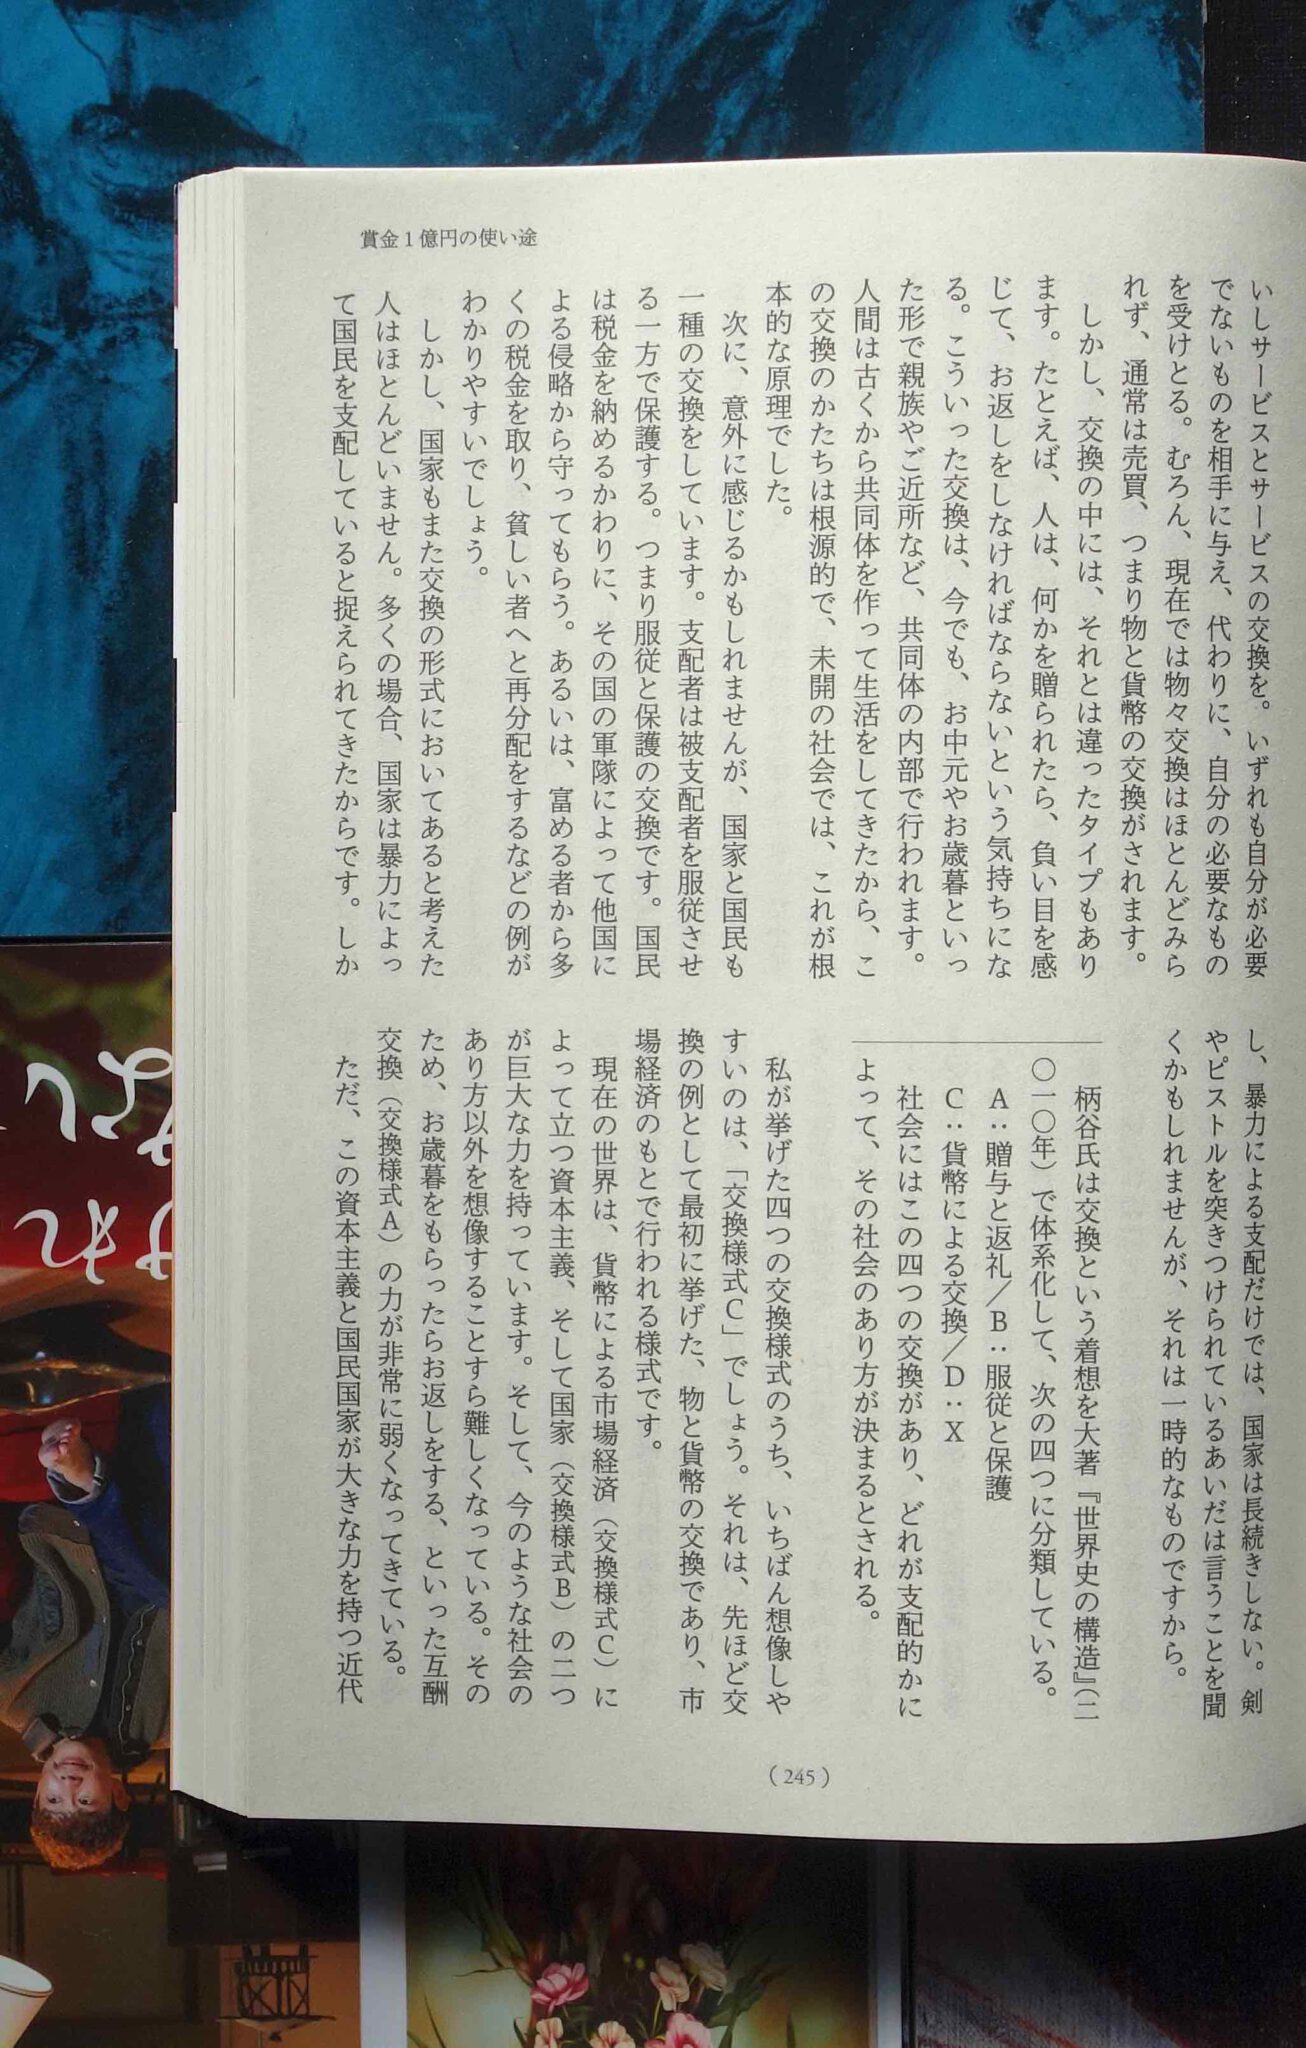 賞金1億円の使い途
いしサービスとサービスの交換を。いずれも自分が必要
でないものを相手に与え、代わりに、自分の必要なもの
を受けとる。むろん、現在では物々交換はほとんどみら
れず、通常は売買、つまり物と貨幣の交換がされます。
しかし、交換の中には、それとは違ったタイプもあり
ます。たとえば、人は、何かを贈られたら、負い目を感
じて、お返しをしなければならないという気持ちにな
る。こういった交換は、今でも、お中元やお歳暮といっ
た形で親族やご近所など、共同体の内部で行われます。
人間は古くから共同体を作って生活をしてきたから、こ
の交換のかたちは根源的で、未開の社会では、これが根
本的な原理でした。
次に、意外に感じるかもしれませんが、国家と国民も
一種の交換をしています。支配者は被支配者を服従させ
る一方で保護する。つまり服従と保護の交換です。国民
は税金を納めるかわりに、その国の軍隊によって他国に
よる侵略から守ってもらう。あるいは、富める者から多
くの税金を取り、貧しい者へと再分配をするなどの例が
わかりやすいでしょう。
しかし、国家もまた交換の形式においてあると考えた
人はほとんどいません。多くの場合、国家は暴力によっ
て国民を支配していると捉えられてきたからです。しか
し、暴力による支配だけでは、国家は長続きしない。剣
やピストルを突きつけられているあいだは言うことを聞
くかもしれませんが、それは一時的なものですから。
柄谷氏は交換という着想を大著『世界史の構造』（二
〇一〇年）で体系化して、次の四つに分類している。
A：贈与と返礼／B：服従と保護
C：貨幣による交換／D：X
社会にはこの四つの交換があり、どれが支配的かに
よって、その社会のあり方が決まるとされる。
私が挙げた四つの交換様式のうち、いちばん想像しや
すいのは、「交換様式C」でしょう。それは、先ほど交
換の例として最初に挙げた、物と貨幣の交換であり、市
場経済のもとで行われる様式です。
現在の世界は、貨幣による市場経済（交換様式C）に
よって立つ資本主義、そして国家（交換様式B）の二つ
が巨大な力を持っています。そして、今のような社会の
あり方以外を想像することすら難しくなっている。その
ため、お歳暮をもらったらお返しをする、といった互酬
交換（交換様式A）の力が非常に弱くなってきている。
ただ、この資本主義と国民国家が大きな力を持つ近代
（245）